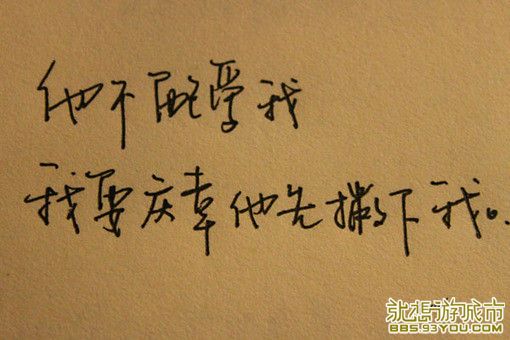 他不配爱我
我要庆幸他先撇下我。
就想游城市
BBS.93YOU.COM